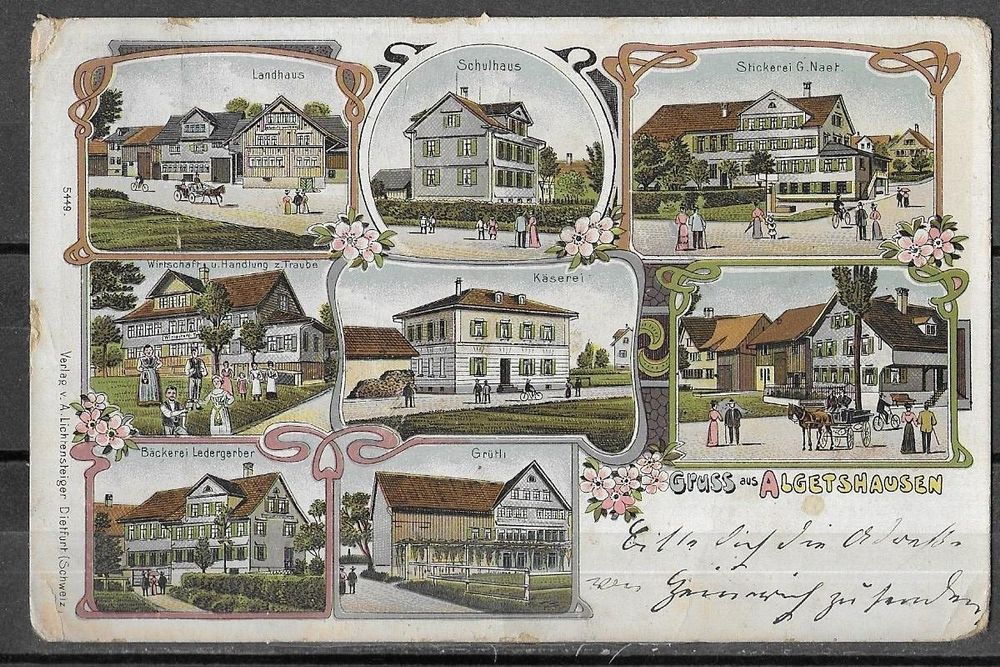 Landhaus
Schulhaus
Stickerei G. Naef.
Wirtschaft u. Handlung z. Traube
Käserei
Bäckerei Ledergerber
Grütli
Gruss aus ALGETSHAUSEN
5449.
Verlag v. A. Lichtensteiger Dietfurt (Schweiz)
Bitte dich die Adresse
von Heinrich zu senden